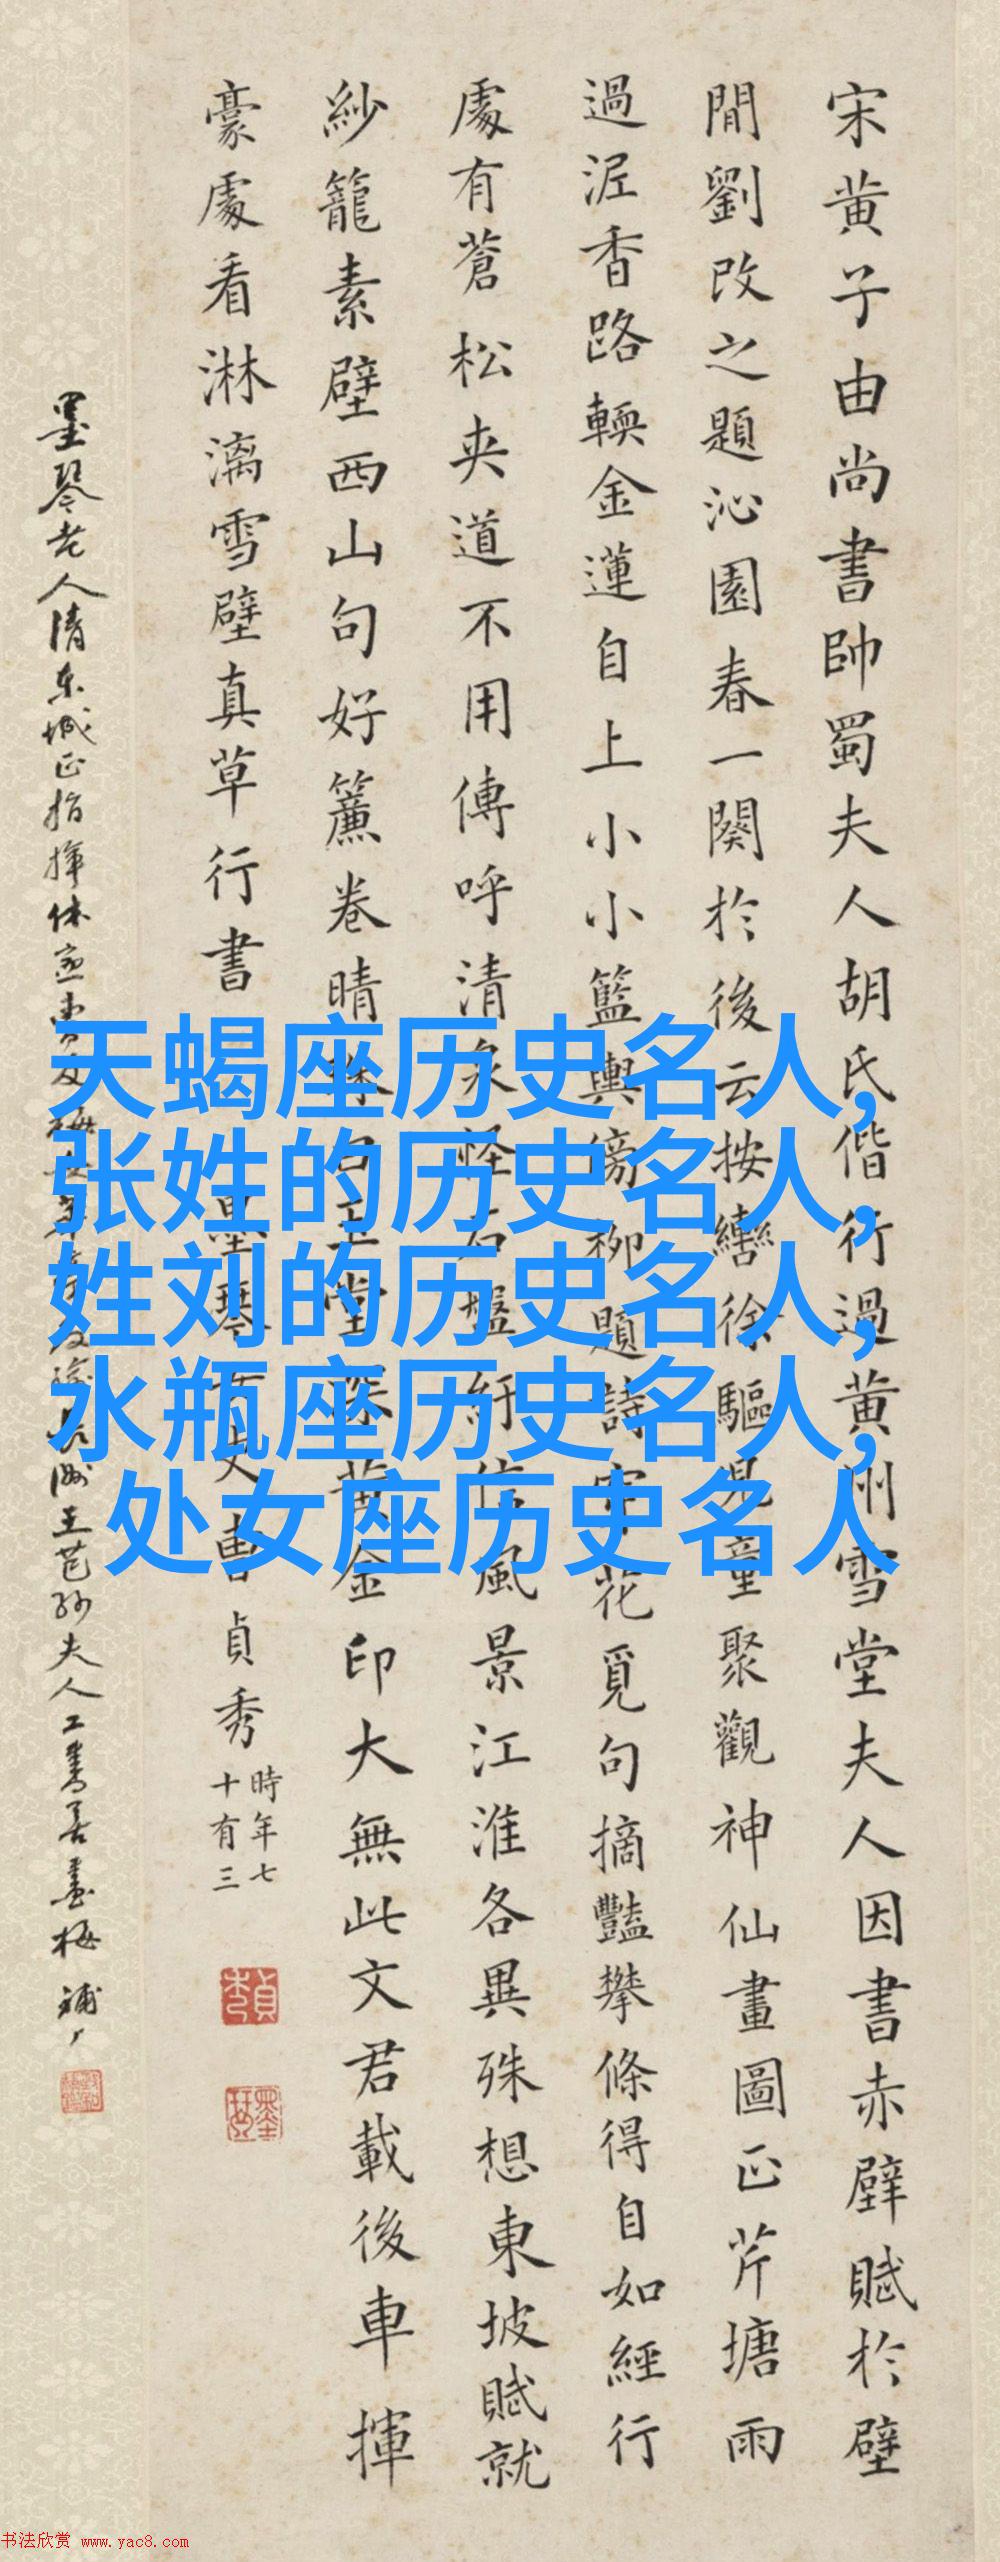 宋黄子由尚書帥蜀夫人胡氏偕行過黄州雪堂夫人因書赤壁賦於壁
間劉改之題沁園春一闋於後云按轡徐驅見童聚觀神仙畫圖正芹塘雨
過泥香路輭金蓮自上小小籃輿傍柳題詩穿花覓句摘豔攀條得自如經行
處有蒼松夾道不用傳呼清泉怪石盤紆信風景江淮各異殊想東坡賦就
紗籠素壁西山句好簾卷晴珠白玉堂深黄金印大無此文君載後車揮
豪處看淋漓雪壁真草行書
墨琴女史曹貞秀
時年七
十有三
貞秀
墨琴
墨琴老人清東城正指揮休
長洲王芑孫夫人工書善畫梅
天蝎座历史名人,
张姓的历史名人,
姓刘的历史名人,
水瓶座历史名人,
处女座历史名人
书法欣赏 www.yac8.com